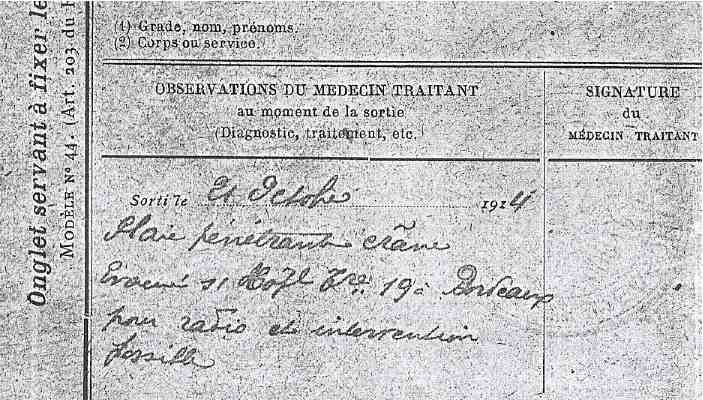 Onglet servant à fixer le
MODÈLE N° 44. (Art. 203 du R
(1) Grade, nom, prénoms.
(2) Corps ou service.
OBSERVATIONS DU MÉDECIN TRAITANT
au moment de la sortie
(Diagnostic, traitement, etc.)
SIGNATURE
du
MÉDECIN TRAITANT
Sorti le 21 Octobre 1914
Plaie pénétrante crâne
Evacué s/ Hop^l 19 à Bordeaux
pour radio et intervention
possible